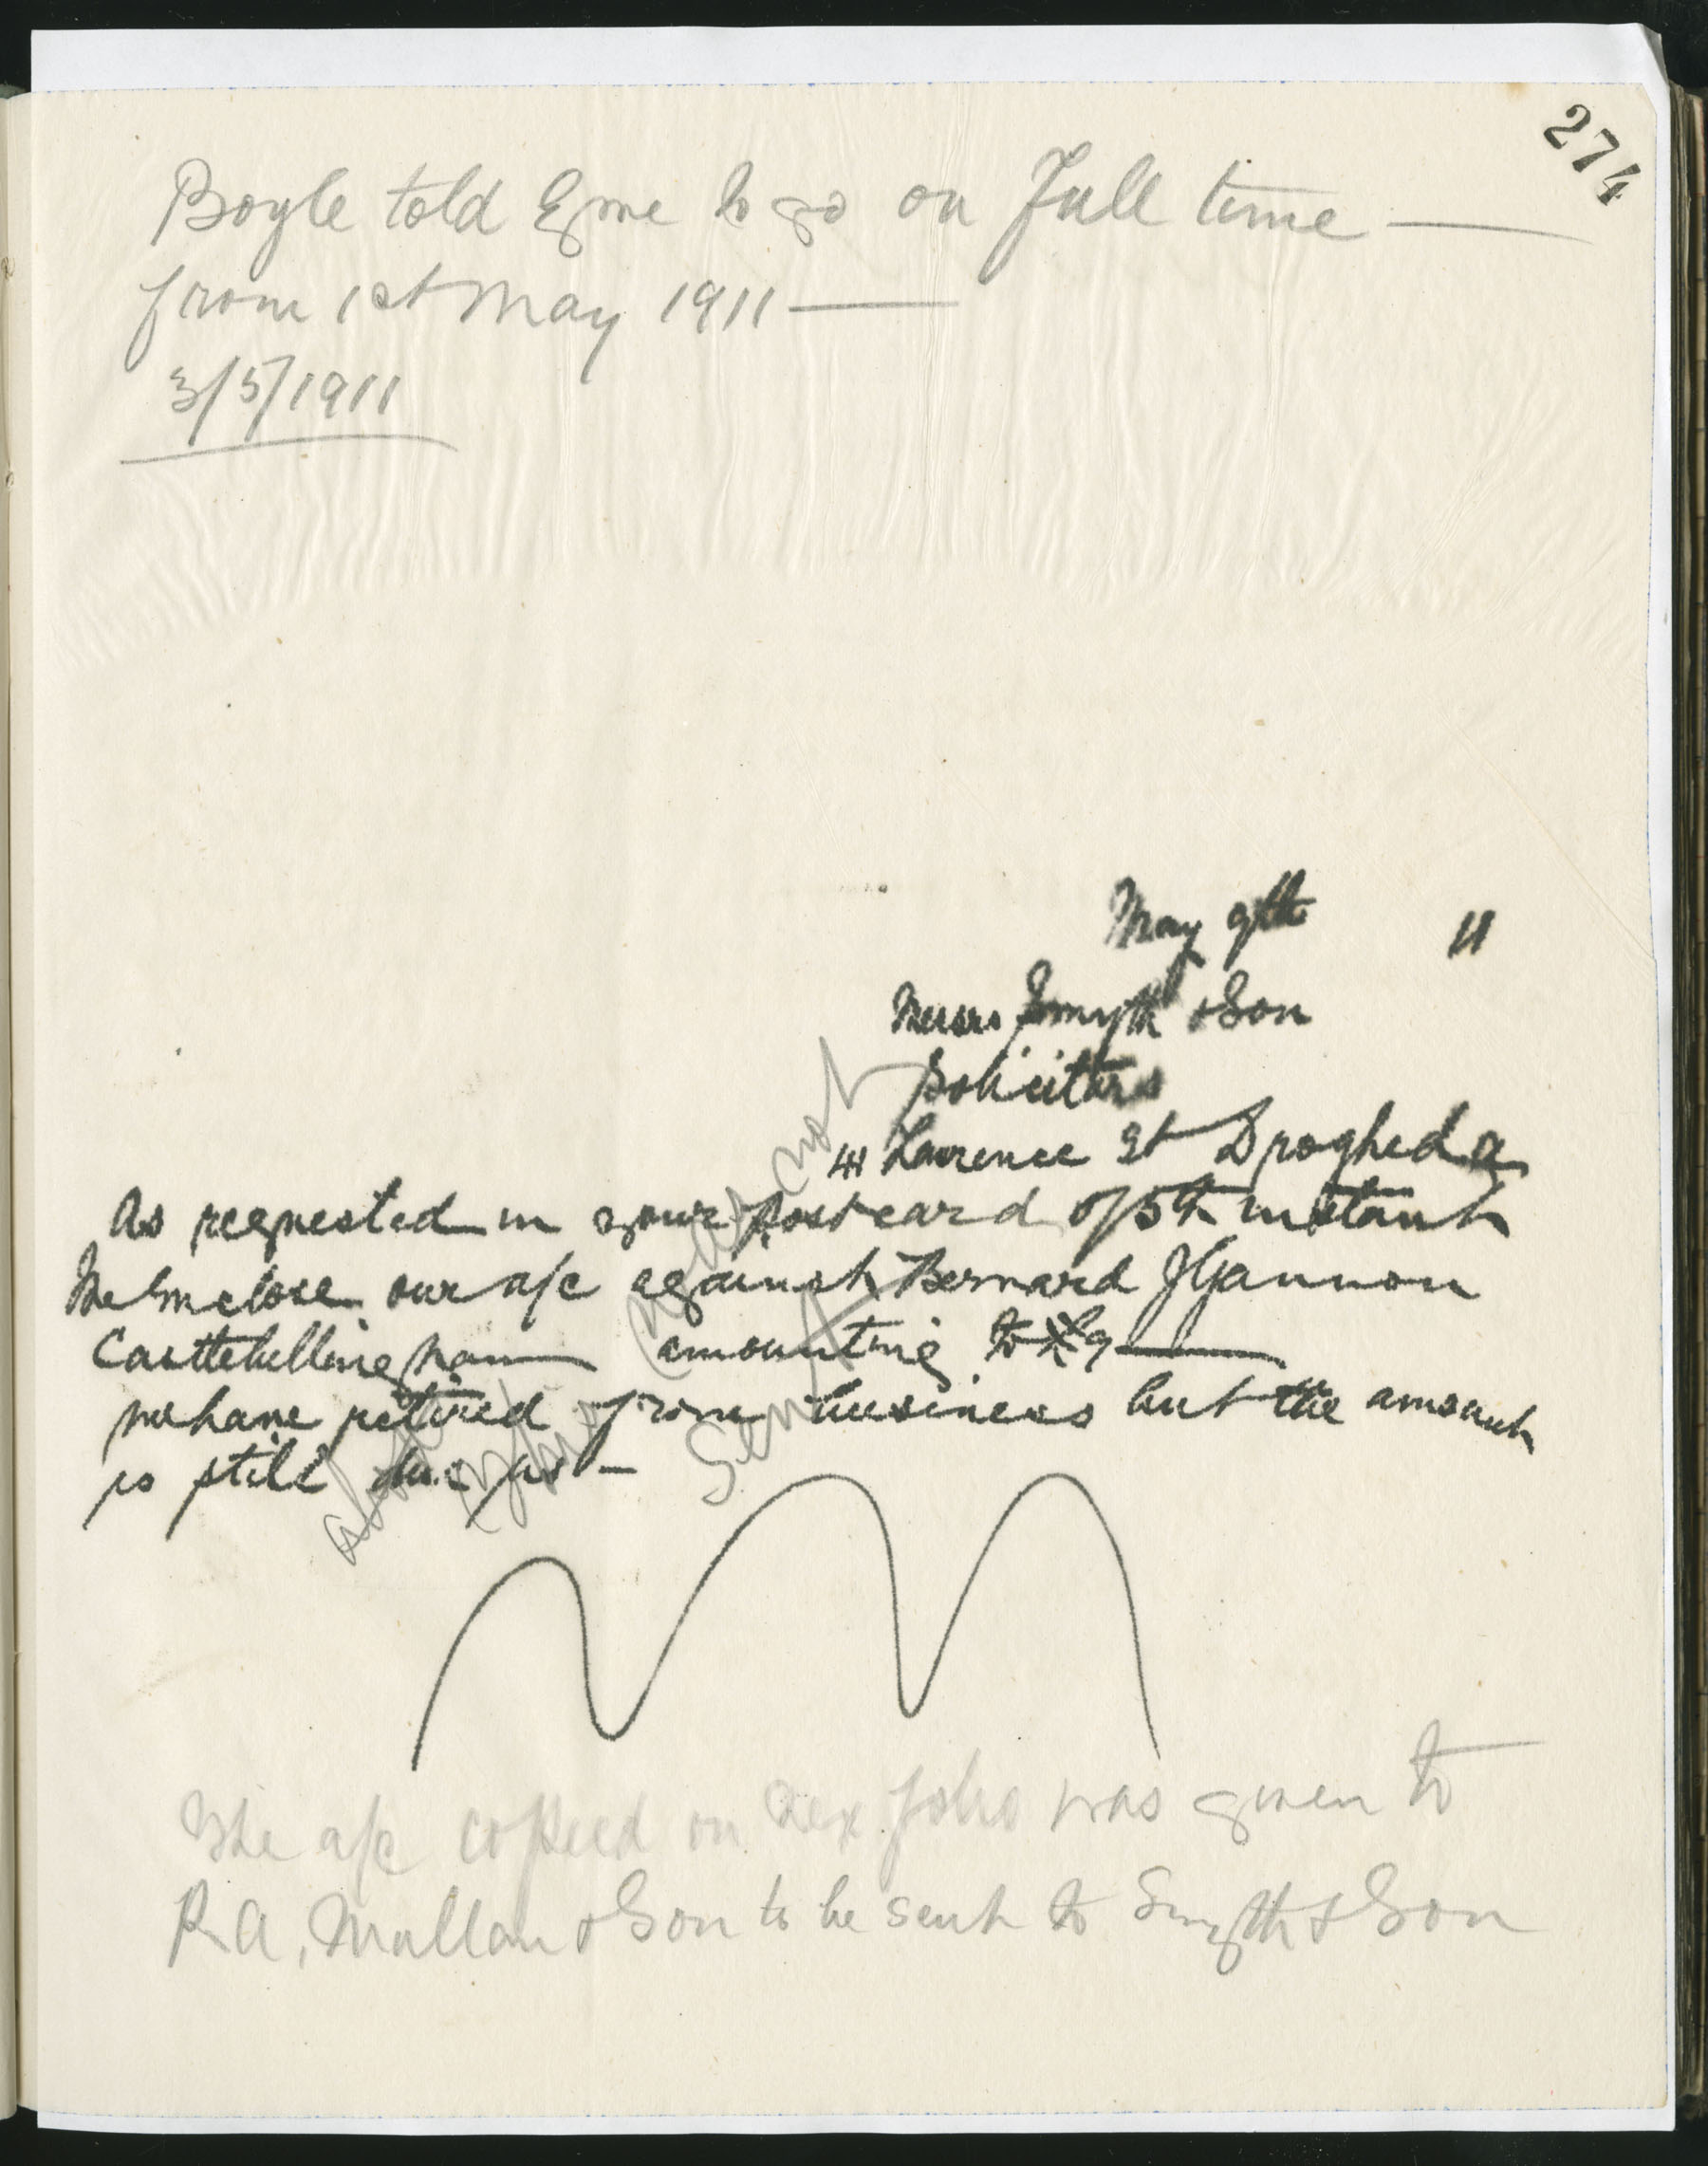 274
Boyle told me to go on Full time —
from 1st May 1911 —
3/5/1911
May 9th 11
Messrs Smyth & Son
Solicitors
Laurence St Drogheda
As requested in your postcard of 5th instant
We Enclose our a/c against Bernard J Gannon
Castlebellingham amounting to £9 —
we have retired from business but the amount
is still due us —
above
was not
Sent
The a/c copied on nex folio was given to
R A, Mullan & Son to be sent to Smyth & Son